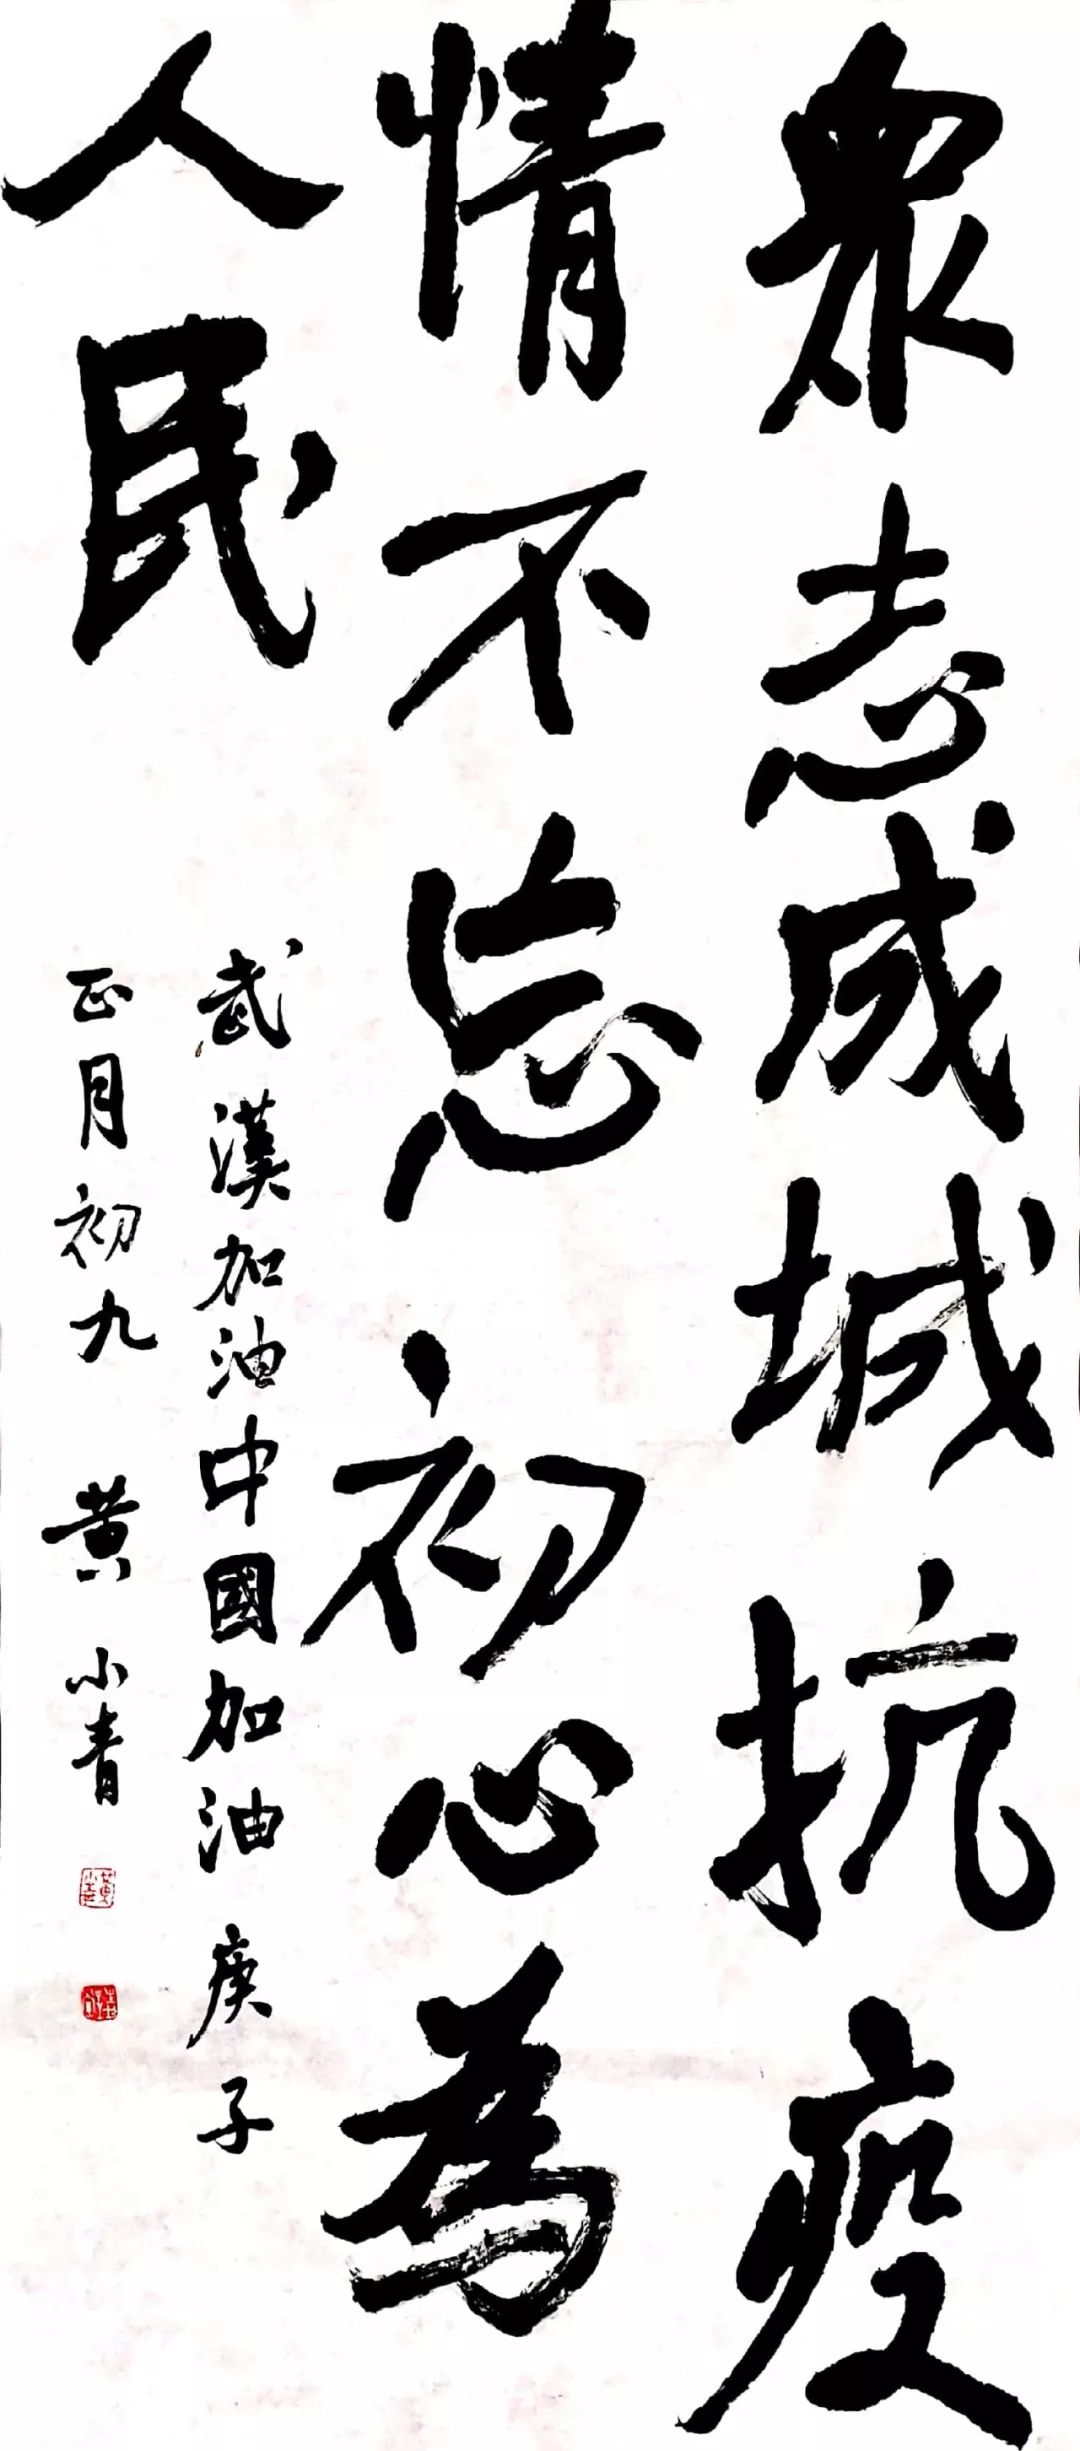 眾志成城抗疫
情不忘初心為
人民
武漢加油中國加油庚子
正月初九 黄小青